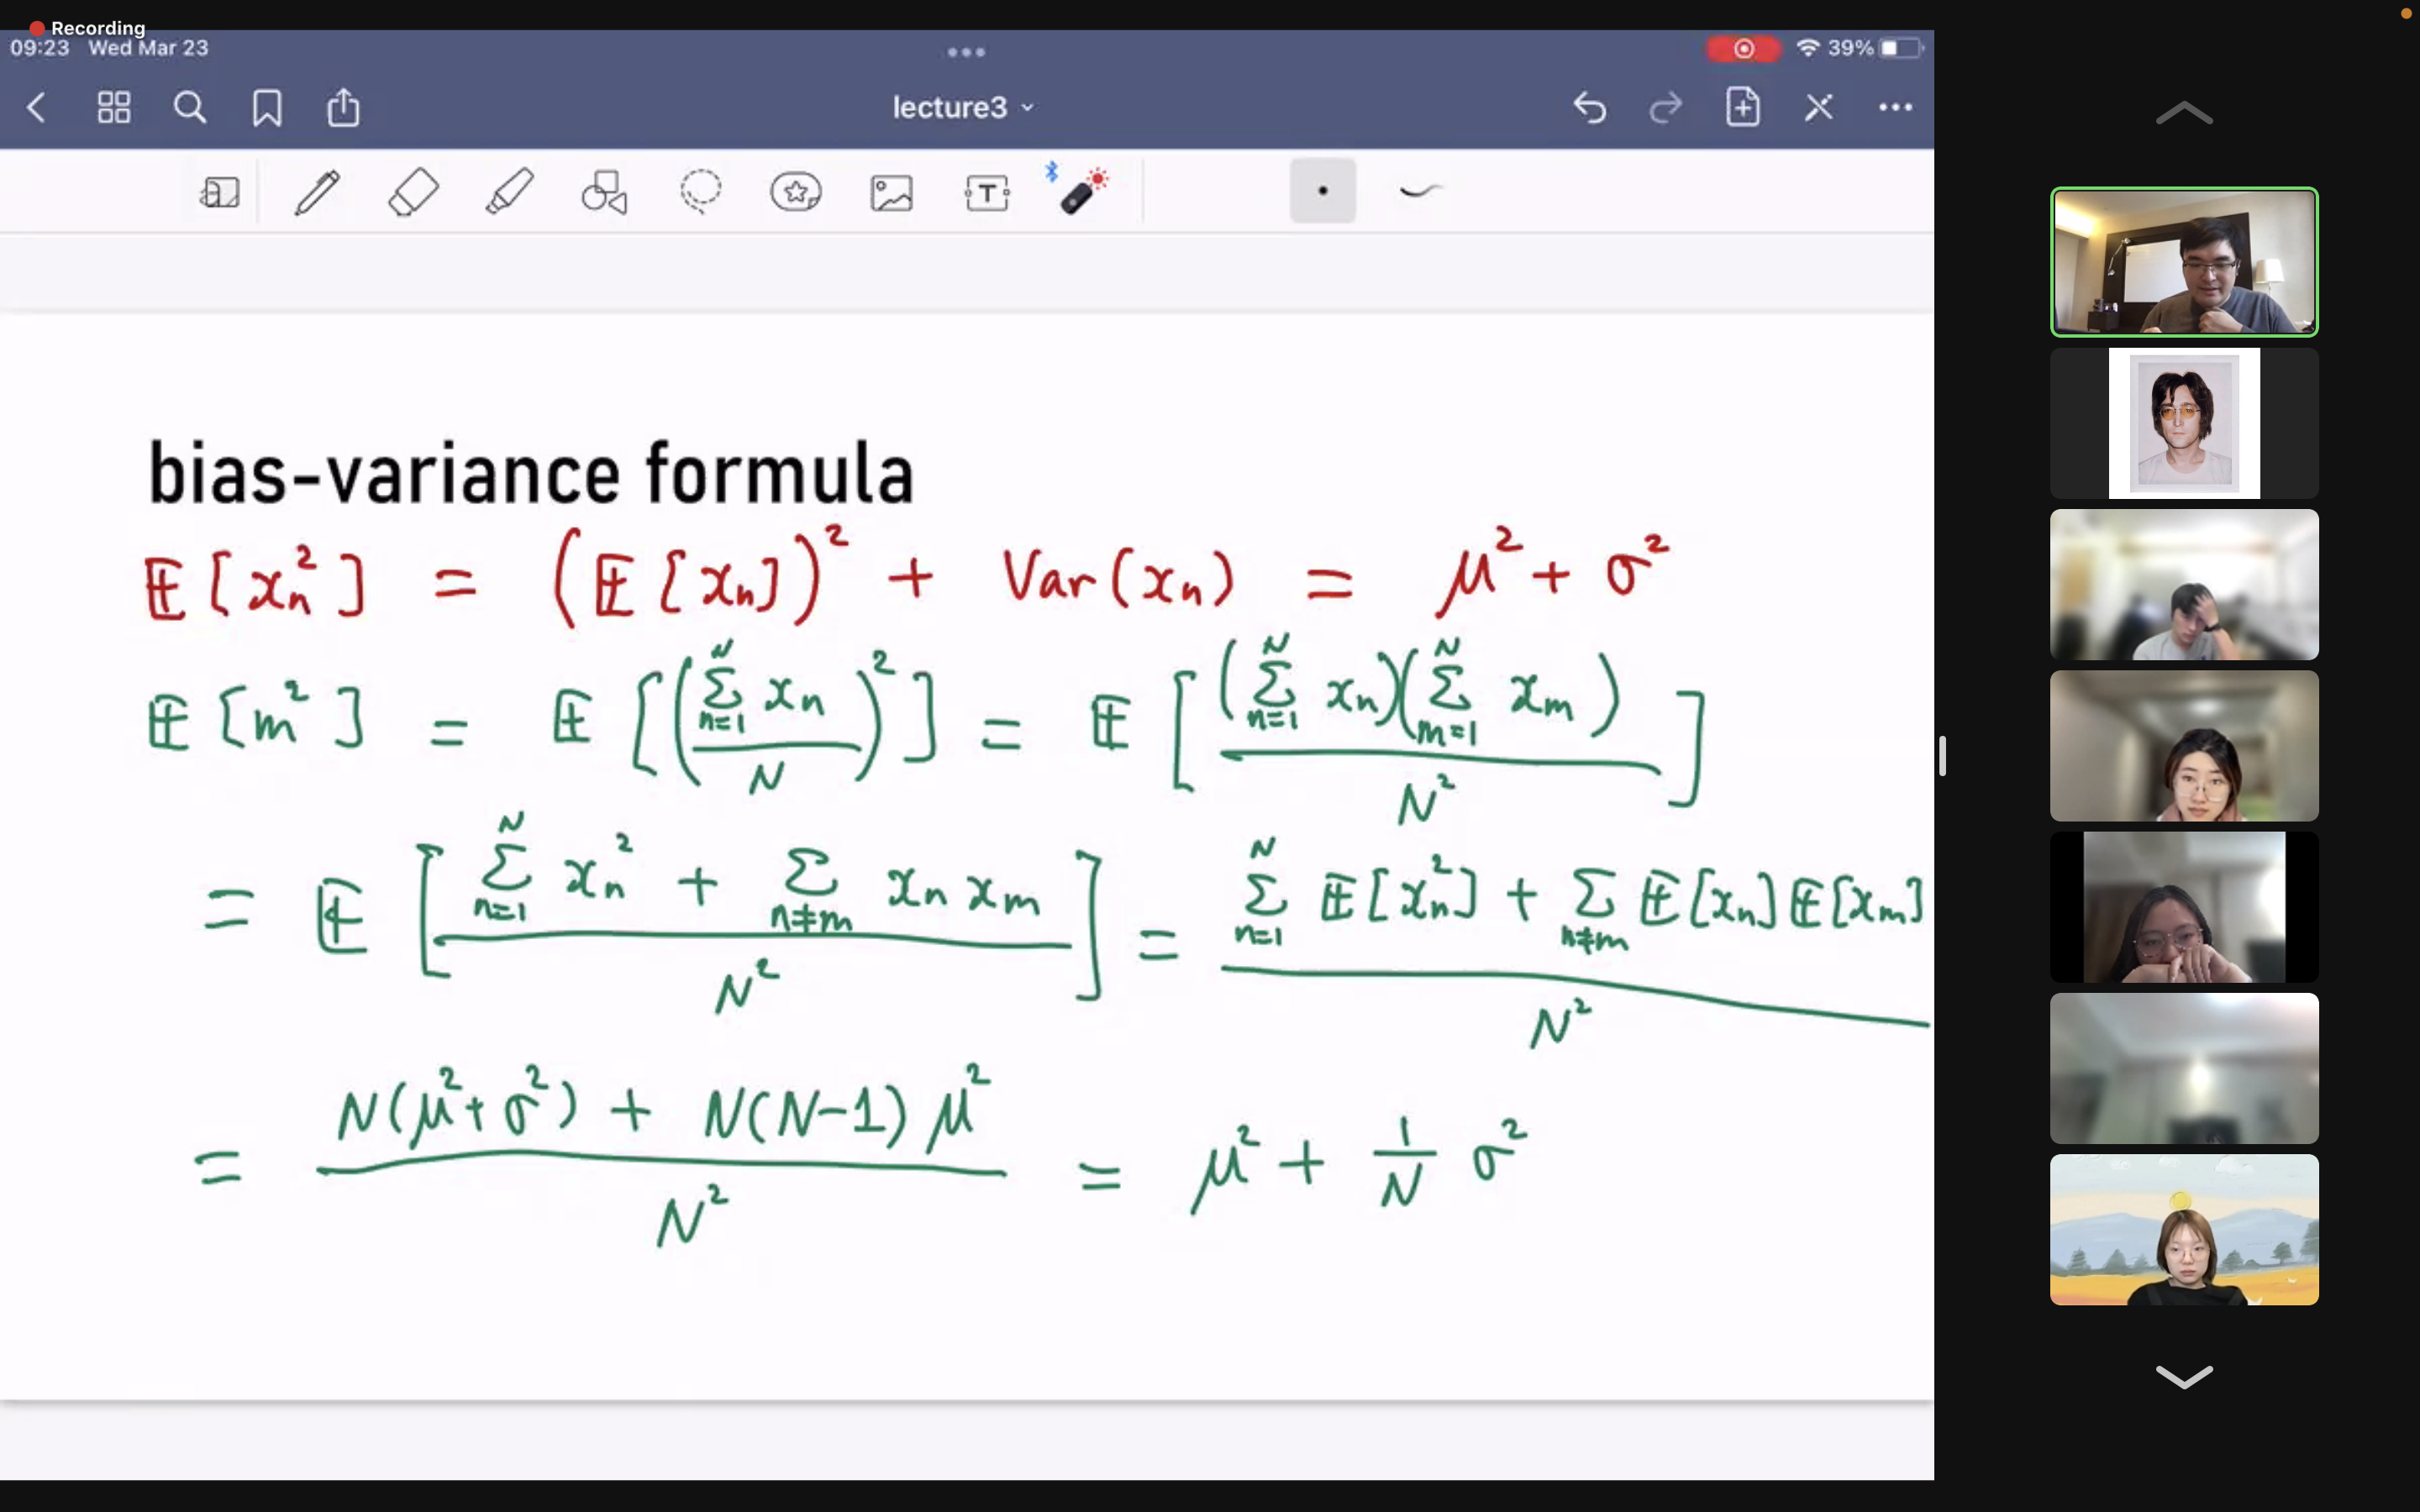 Recording
09:23 Wed Mar 23
39%
lecture3
T
bias-variance formula
𝔼[xₙ²] = (𝔼[xₙ])² + Var(xₙ) = μ² + σ²
𝔼[m²] = 𝔼[(∑ₙ₌₁ᴺ xₙ / N)²] = 𝔼[(∑ₙ₌₁ᴺ xₙ)(∑ₘ₌₁ᴺ xₘ) / N²]
= 𝔼[(∑ₙ₌₁ᴺ xₙ² + ∑ₙ≠ₘ xₙ xₘ) / N²] = (∑ₙ₌₁ᴺ 𝔼[xₙ²] + ∑ₙ≠ₘ 𝔼[xₙ]𝔼[xₘ]) / N²
= (N(μ² + σ²) + N(N-1) μ²) / N² = μ² + 1/N σ²